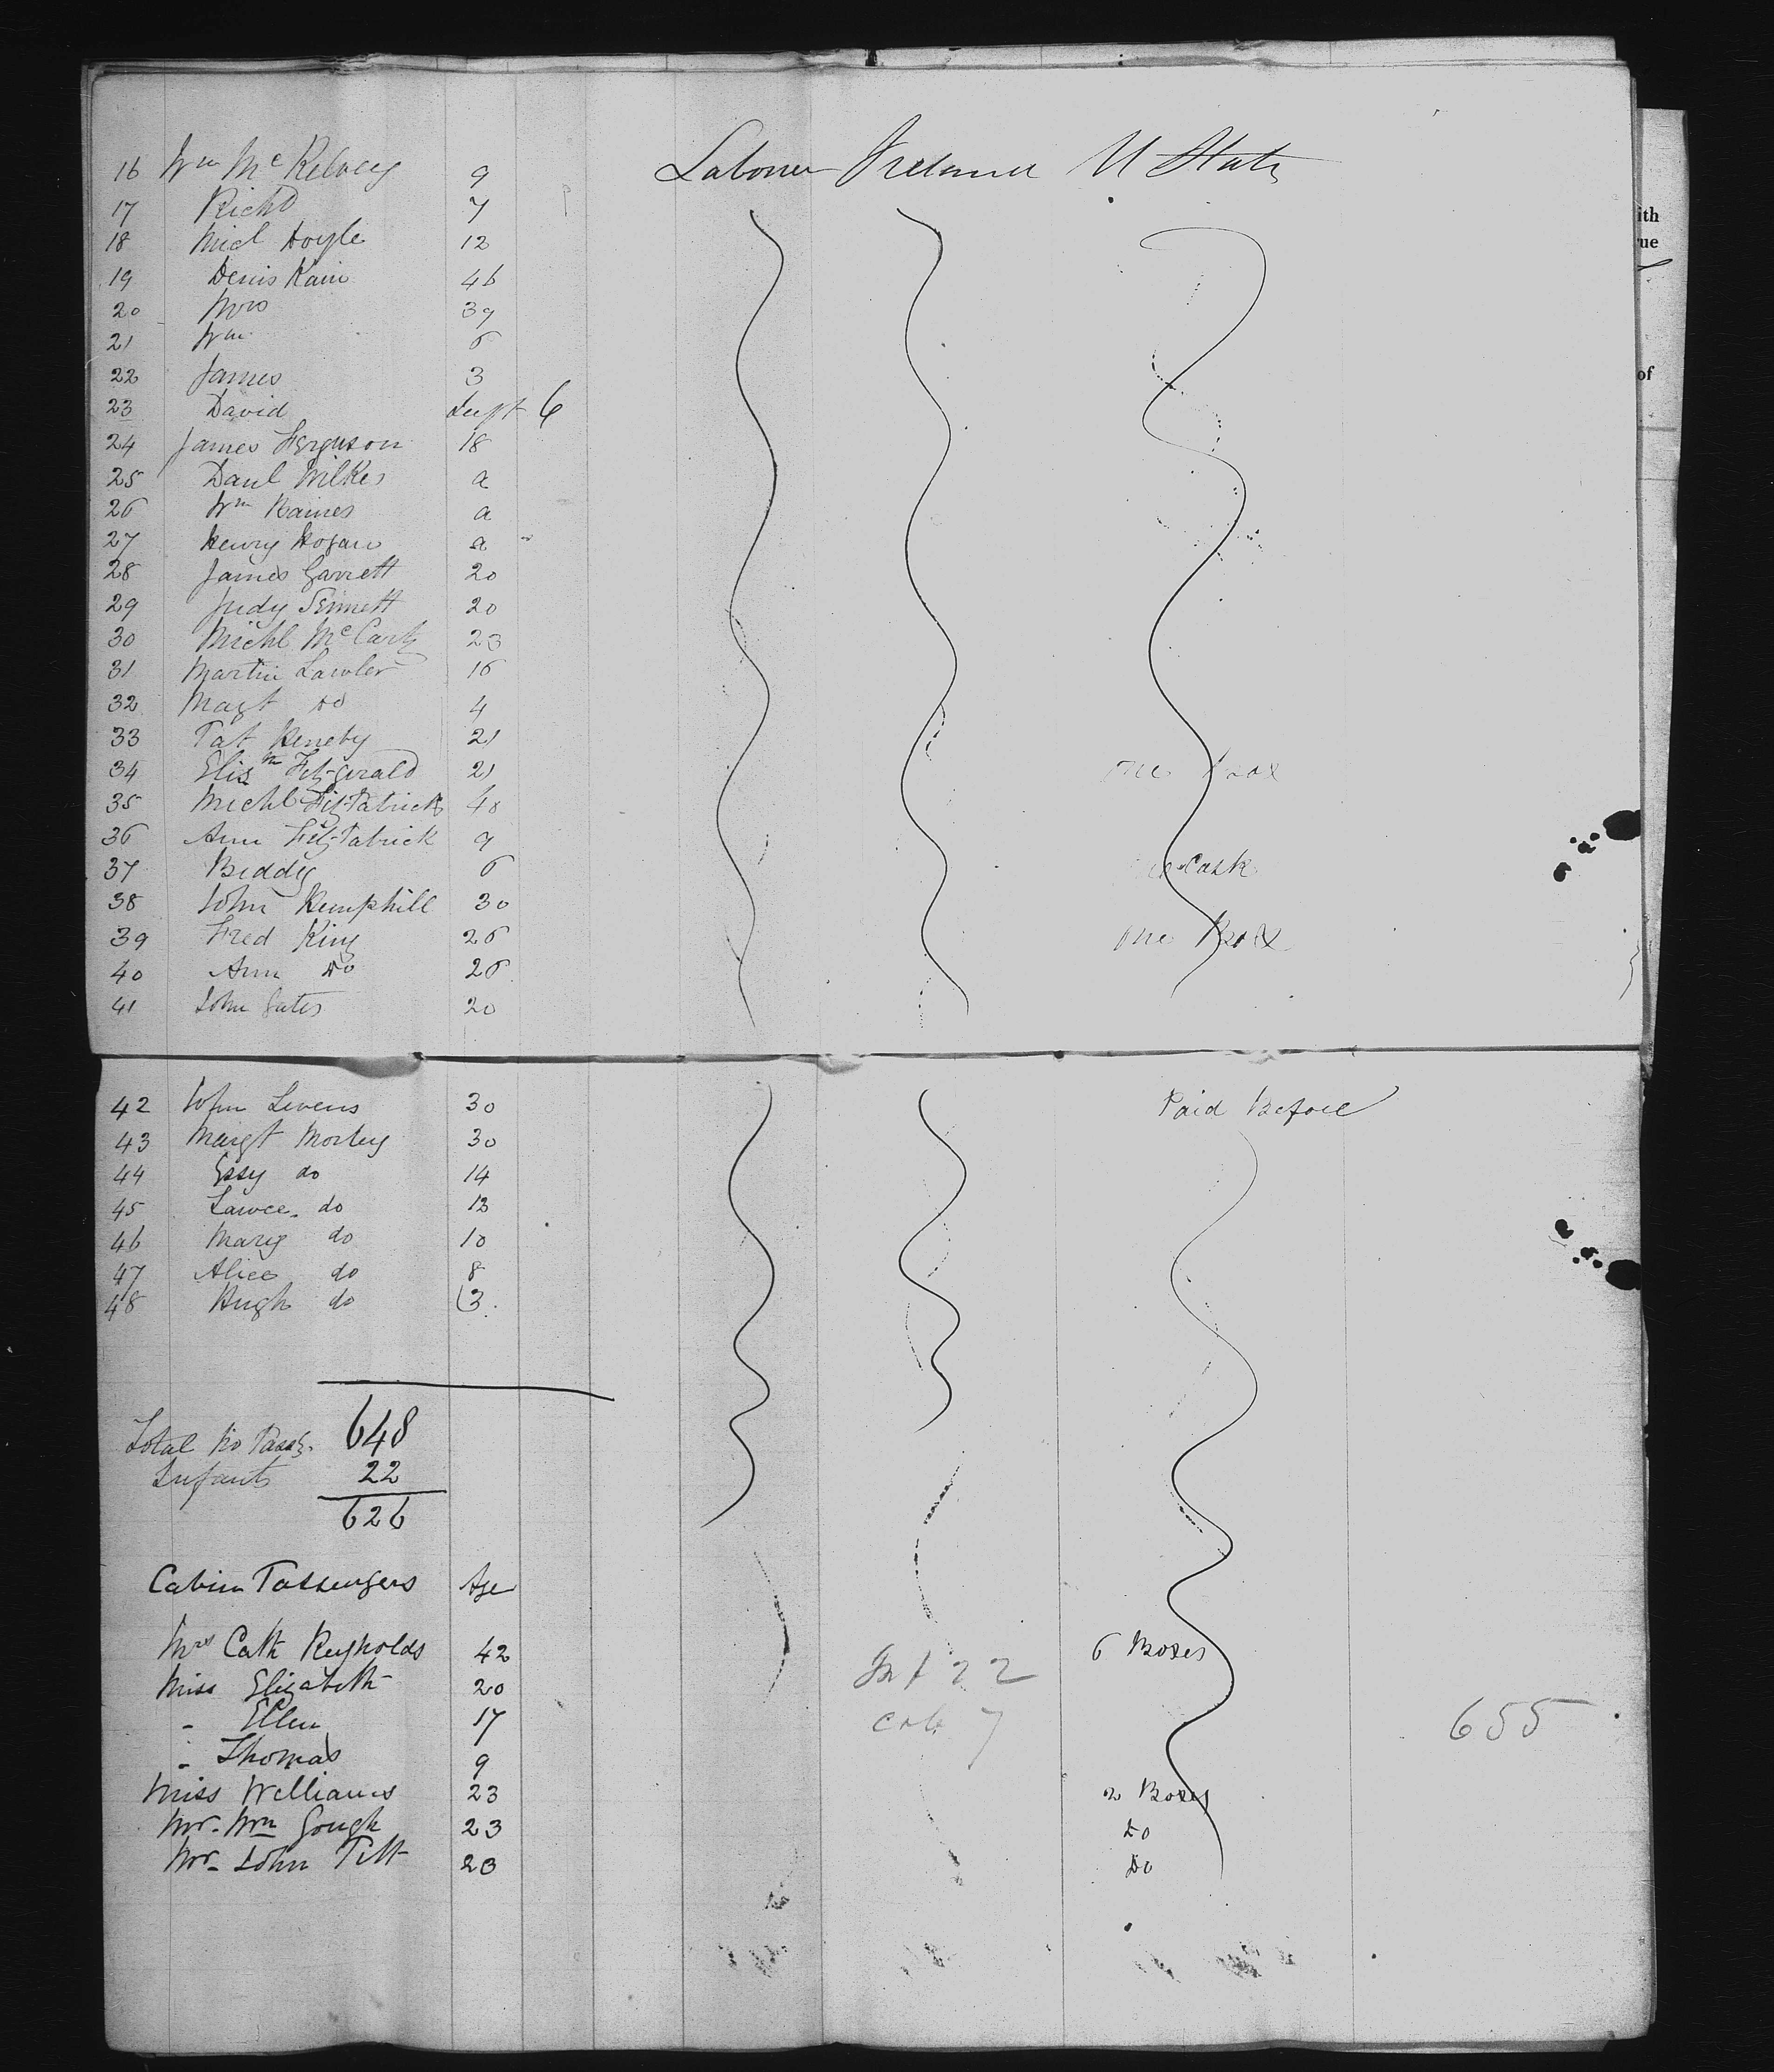 16 Wm McKelvey 9 Laborer Ireland U States
17 Richd 7
18 Micl Doyle 12
19 Denis Kain 46
20 Mrs 39
21 Wm 6
22 James 3
23 David Inft 6
24 James Ferguson 18
25 Danl Wilkes a
26 Wm Raines a
27 Henry Hogan a
28 James Garrett 20
29 Judy Sinnett 20
30 Michl McCarty 23
31 Martin Lawler 16
32 Magt Do 4
33 Pat Kenety 21
34 Elizth Fitzgerald 21 One Box
35 Michl Fitzpatrick 40
36 Ann Fitzpatrick 9
37 Biddy 6 Cask
38 John Hemphill 30
39 Fred King 26 One Box
40 Ann Do 26
41 John Gates 20
42 John Levens 30 Paid Before
43 Margt Morley 30
44 Essy do 14
45 Lawce do 12
46 Mary do 10
47 Alice do 8
48 Hugh do 3
Total No Passgs. 648
Infants 22
626
Cabin Passengers Age
Mrs Cath Reynolds 42 6 Boxes
Miss Elizabeth 20 Inf 22
" Ellen 17 cab 7 655
" Thomas 9
Miss Williams 23 2 Boxes
Mr. Wm Gough 23 Do
Mr. John Pitt 23 Do
ith
rue
of